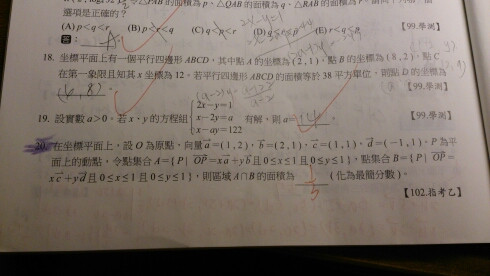 △PAB的面積為p、△QAB的面積為q、△RAB的面積為r
選項是正確的？
(A) p<q<r (B) p<r<q (C) q<p<r (D) (E) r<q<p 【99.學測】
答：
18. 坐標平面上有一個平行四邊形ABCD，其中點A的坐標為(2,1)，點B的坐標為(8,2)，點C
在第一象限且知其x坐標為12。若平行四邊形ABCD的面積等於38平方單位，則點D的坐標為
(6,8) 【99.學測】
19. 設實數a>0。若x、y的方程組 { 2x-y=1
x-2y=a 有解，則a=
x-ay=122 【99.學測】
20. 在坐標平面上，設O為原點，向量a=(1,2)，b=(2,1)，c=(1,1)，d=(-1,1)。P為平
面上的動點，令點集合A={P| OP=xa+yb且0≤x≤1且0≤y≤1}，點集合B={P| OP=
xc+yd且0≤x≤1且0≤y≤1}，則區域A∩B的面積為 （化為最簡分數）。
【102.指考乙】